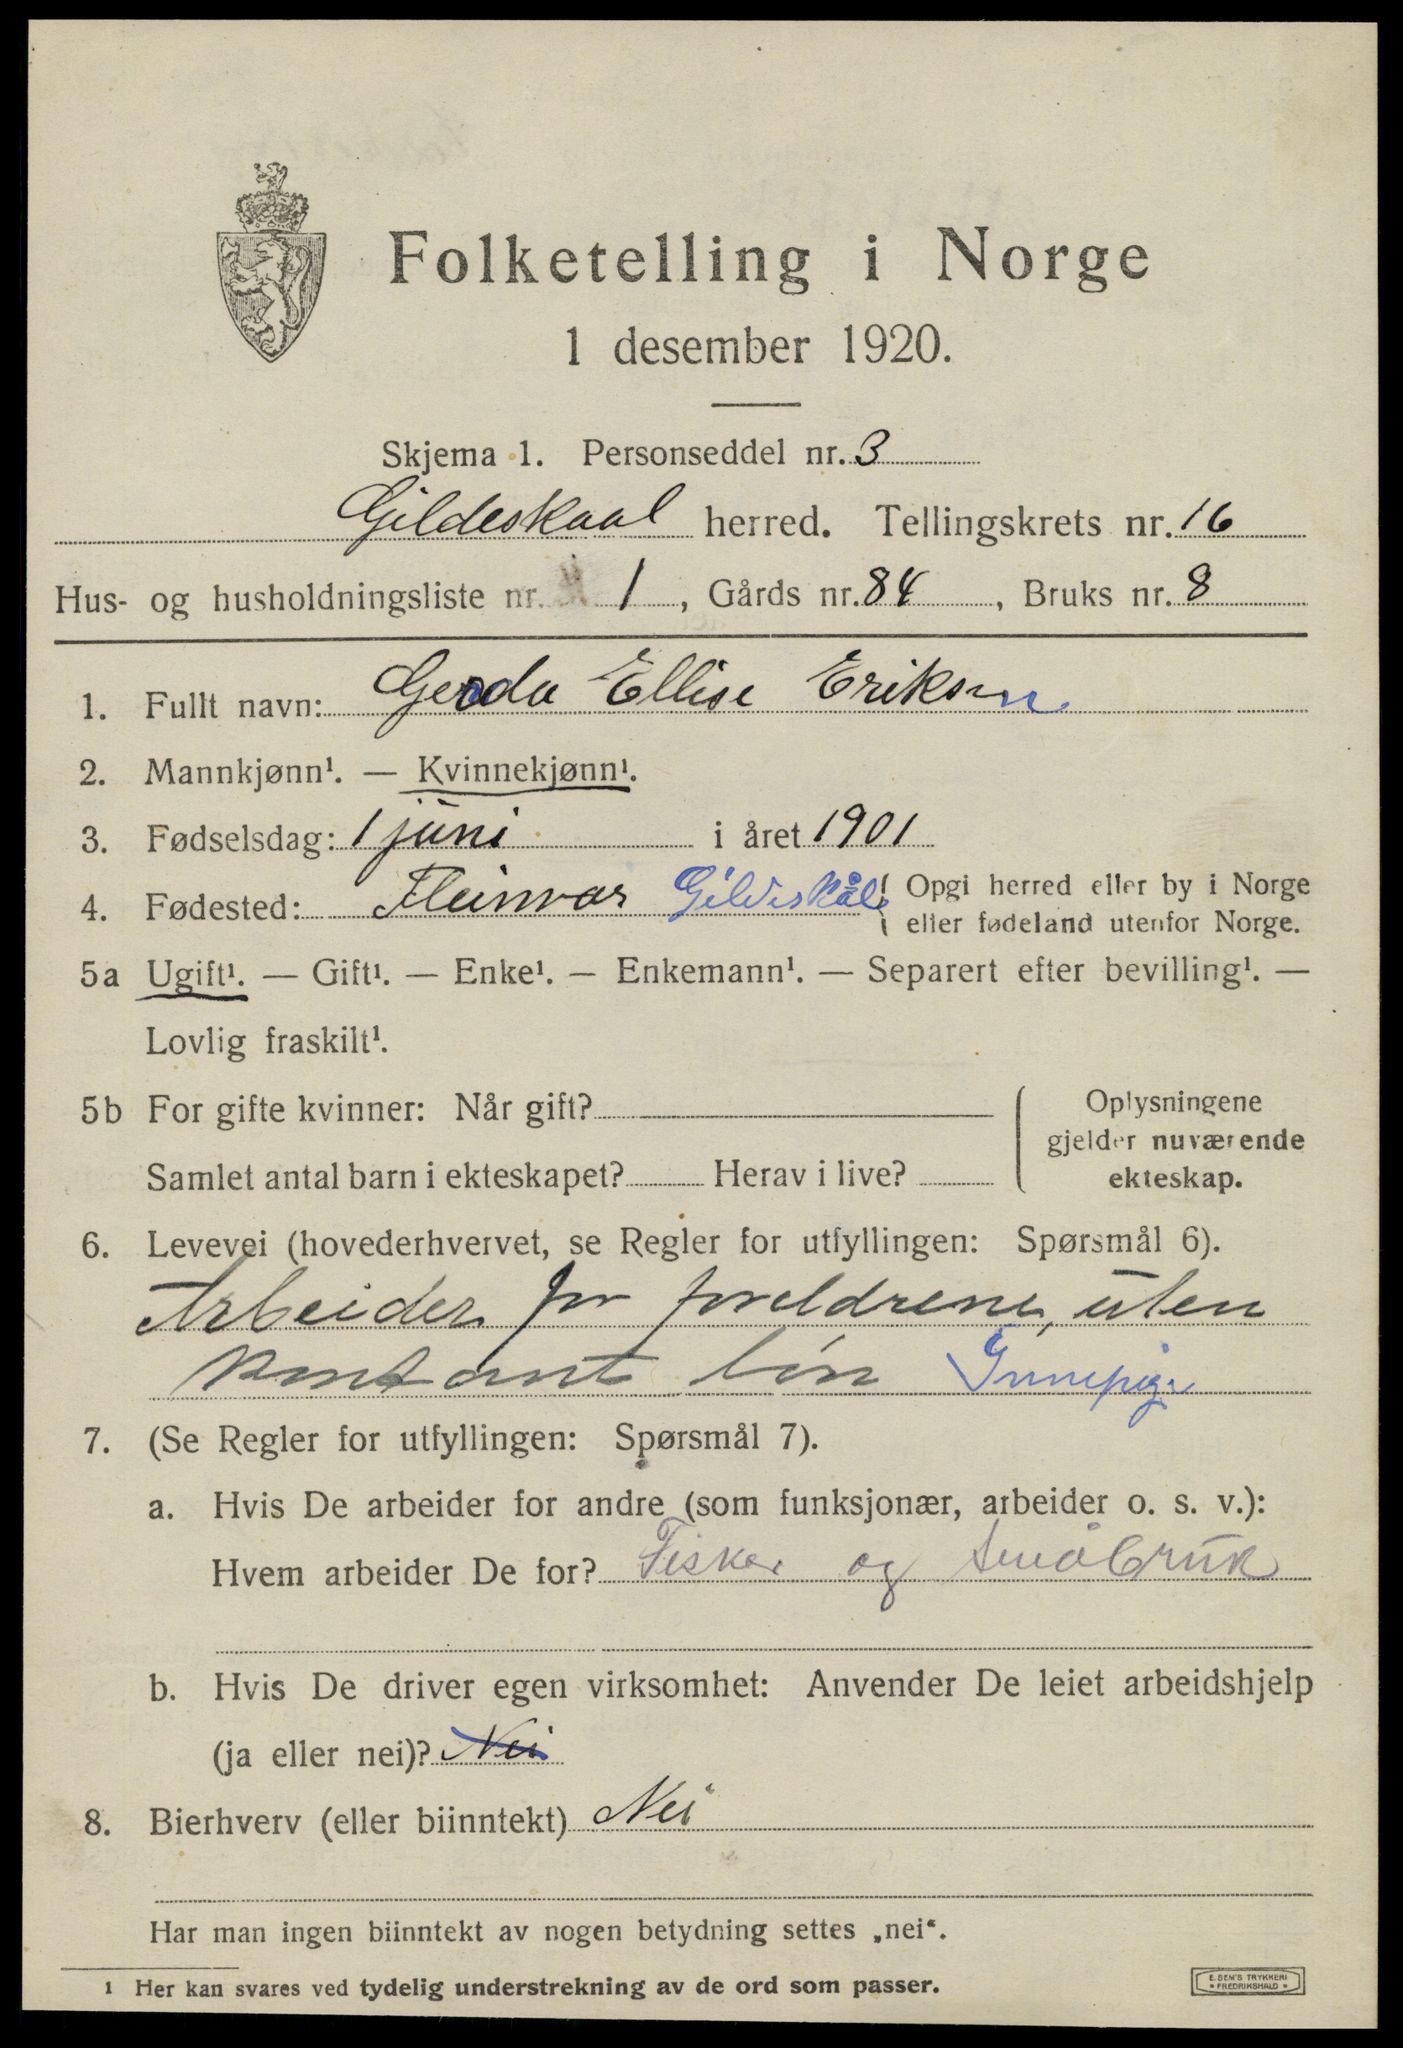 Folketelling i Norge
1 desember 1920.
Skjema 1. Personseddel nr. 3
Gildeskaal herred. Tellingskrets nr. 16
Hus- og husholdningsliste nr. 1, Gårds nr. 84, Bruks nr. 8
1. Fullt navn: Gerda Ellise Eriksen
2. Mannkjønn¹. — Kvinnekjønn¹.
3. Fødselsdag: 1 juni i året 1901
4. Fødested: Fleinvær Gildeskål { Opgi herred eller by i Norge
eller fødeland utenfor Norge.
5a Ugift¹. — Gift¹. — Enke¹. — Enkemann¹. — Separert efter bevilling¹. —
Lovlig fraskilt¹.
5b For gifte kvinner: Når gift?
Samlet antal barn i ekteskapet? Herav i live?
Oplysningene
gjelder nuværende
ekteskap.
6. Levevei (hovederhvervet, se Regler for utfyllingen: Spørsmål 6).
Arbeider for foreldrene, uten
kontant løn
7. (Se Regler for utfyllingen: Spørsmål 7).
a. Hvis De arbeider for andre (som funksjonær, arbeider o. s. v.):
Hvem arbeider De for? Fisker og Småbruk
b. Hvis De driver egen virksomhet: Anvender De leiet arbeidshjelp
(ja eller nei)? Nei
8. Bierhverv (eller biinntekt) Nei
Har man ingen biinntekt av nogen betydning settes „nei“.
1 Her kan svares ved tydelig understrekning av de ord som passer.
E. SEM'S TRYKKERI
* FREDRIKSHALD *